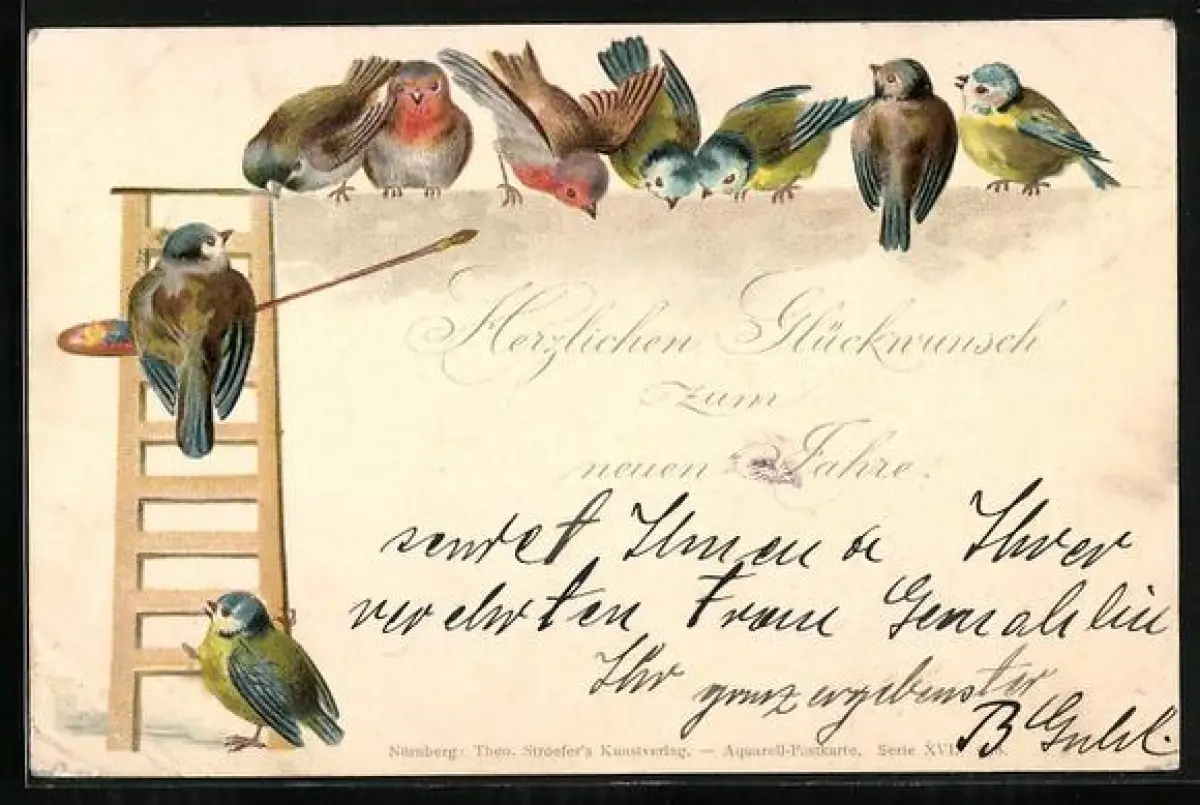 Herzlichen Glückwunsch
zum
neuen Jahre.
sendet Ihnen & Ihrer
verehrten Frau Gemahlin
Ihr ganz ergebenster
B
Nürnberg: Theo. Stroefer's Kunstverlag. — Aquarell-Postkarte. Serie